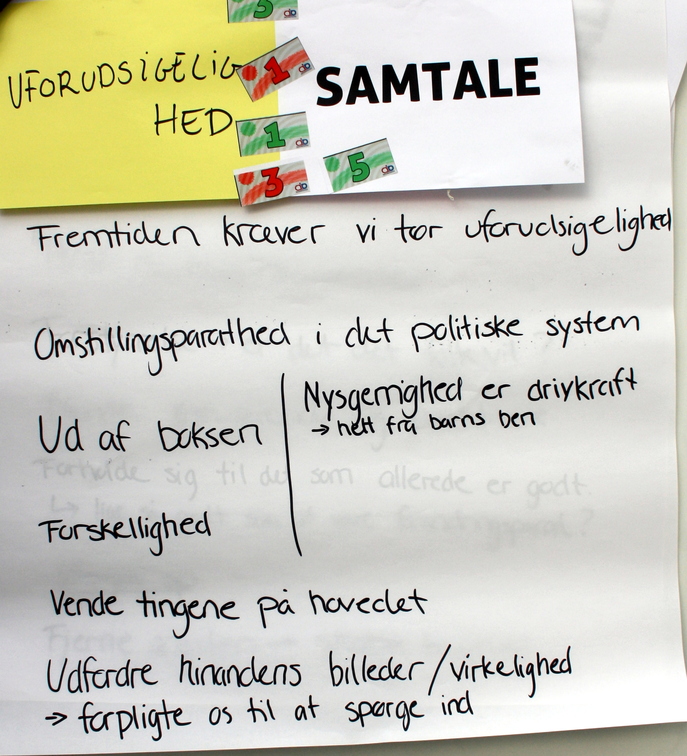 3
UFORUDSIGELIG
HED
1
SAMTALE
1
5
3
Fremtiden kræver vi tør uforudsigelighed
Omstillingsparathed i det politiske system
Nysgerrighed er drivkraft
→ helt fra barns ben
Ud af boksen
Forskellighed
Forholde sig til det som allerede er godt
Vende tingene på hovedet
Udfordre hinandens billeder/virkelighed
→ forpligte os til at spørge ind